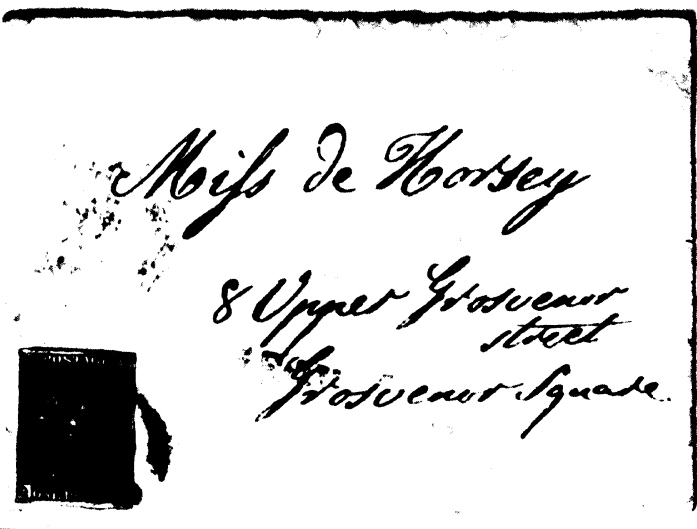 Miſs de Horsey
8 Upper Grosvenor
street
Grosvenor Square.
POSTAGE